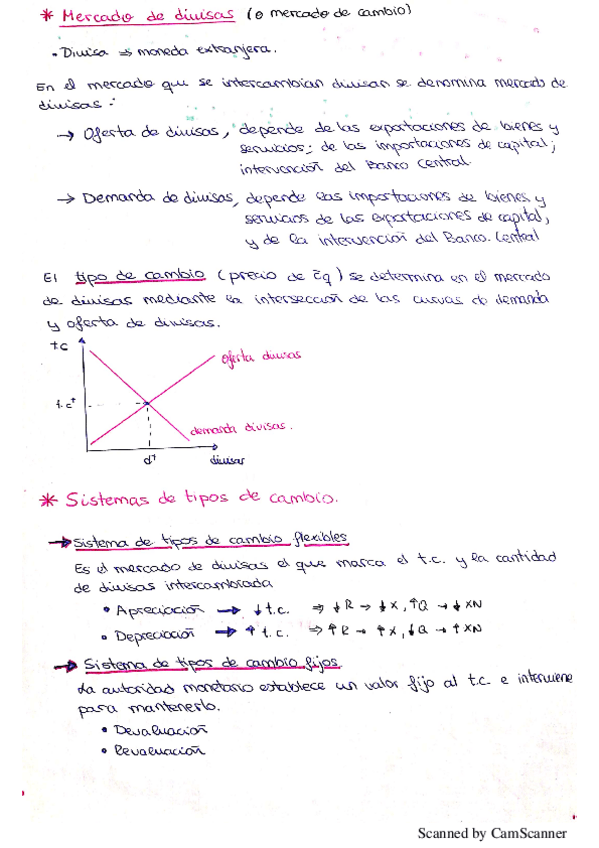 * Mercado de divisas (o mercado de cambio)
• Divisa ⇒ moneda extranjera.
En el mercado que se intercambian divisan se denomina mercado de
divisas:
→ Oferta de divisas, depende de las exportaciones de bienes y
servicios; de las importaciones de capital;
intervención del Banco Central.
→ Demanda de divisas, depende las importaciones de bienes y
servicios de las exportaciones de capital,
y de la intervención del Banco Central
El tipo de cambio (precio de Eq) se determina en el mercado
de divisas mediante la intersección de las curvas de demanda
y oferta de divisas.
t.c
oferta divisas
t.c*
demanda divisas.
d*
divisas
* Sistemas de tipos de cambio.
→ Sistema de tipos de cambio flexibles
Es el mercado de divisas el que marca el t.c. y la cantidad
de divisas intercambiada
• Apreciación → ↓t.c. ⇒ ↓R → ↓X, ↑Q → ↓XN
• Depreciación → ↑t.c. ⇒ ↑R → ↑X, ↓Q → ↑XN
→ Sistema de tipos de cambio fijos.
La autoridad monetario establece un valor fijo al t.c. e interviene
para mantenerlo.
• Devaluación
• Revaluación
Scanned by CamScanner